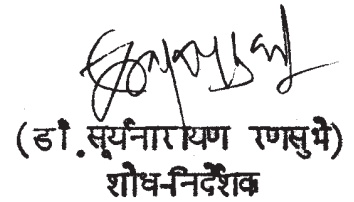 (डॉ. सूर्यनारायण रणसुभे)
शोध-निर्देशक